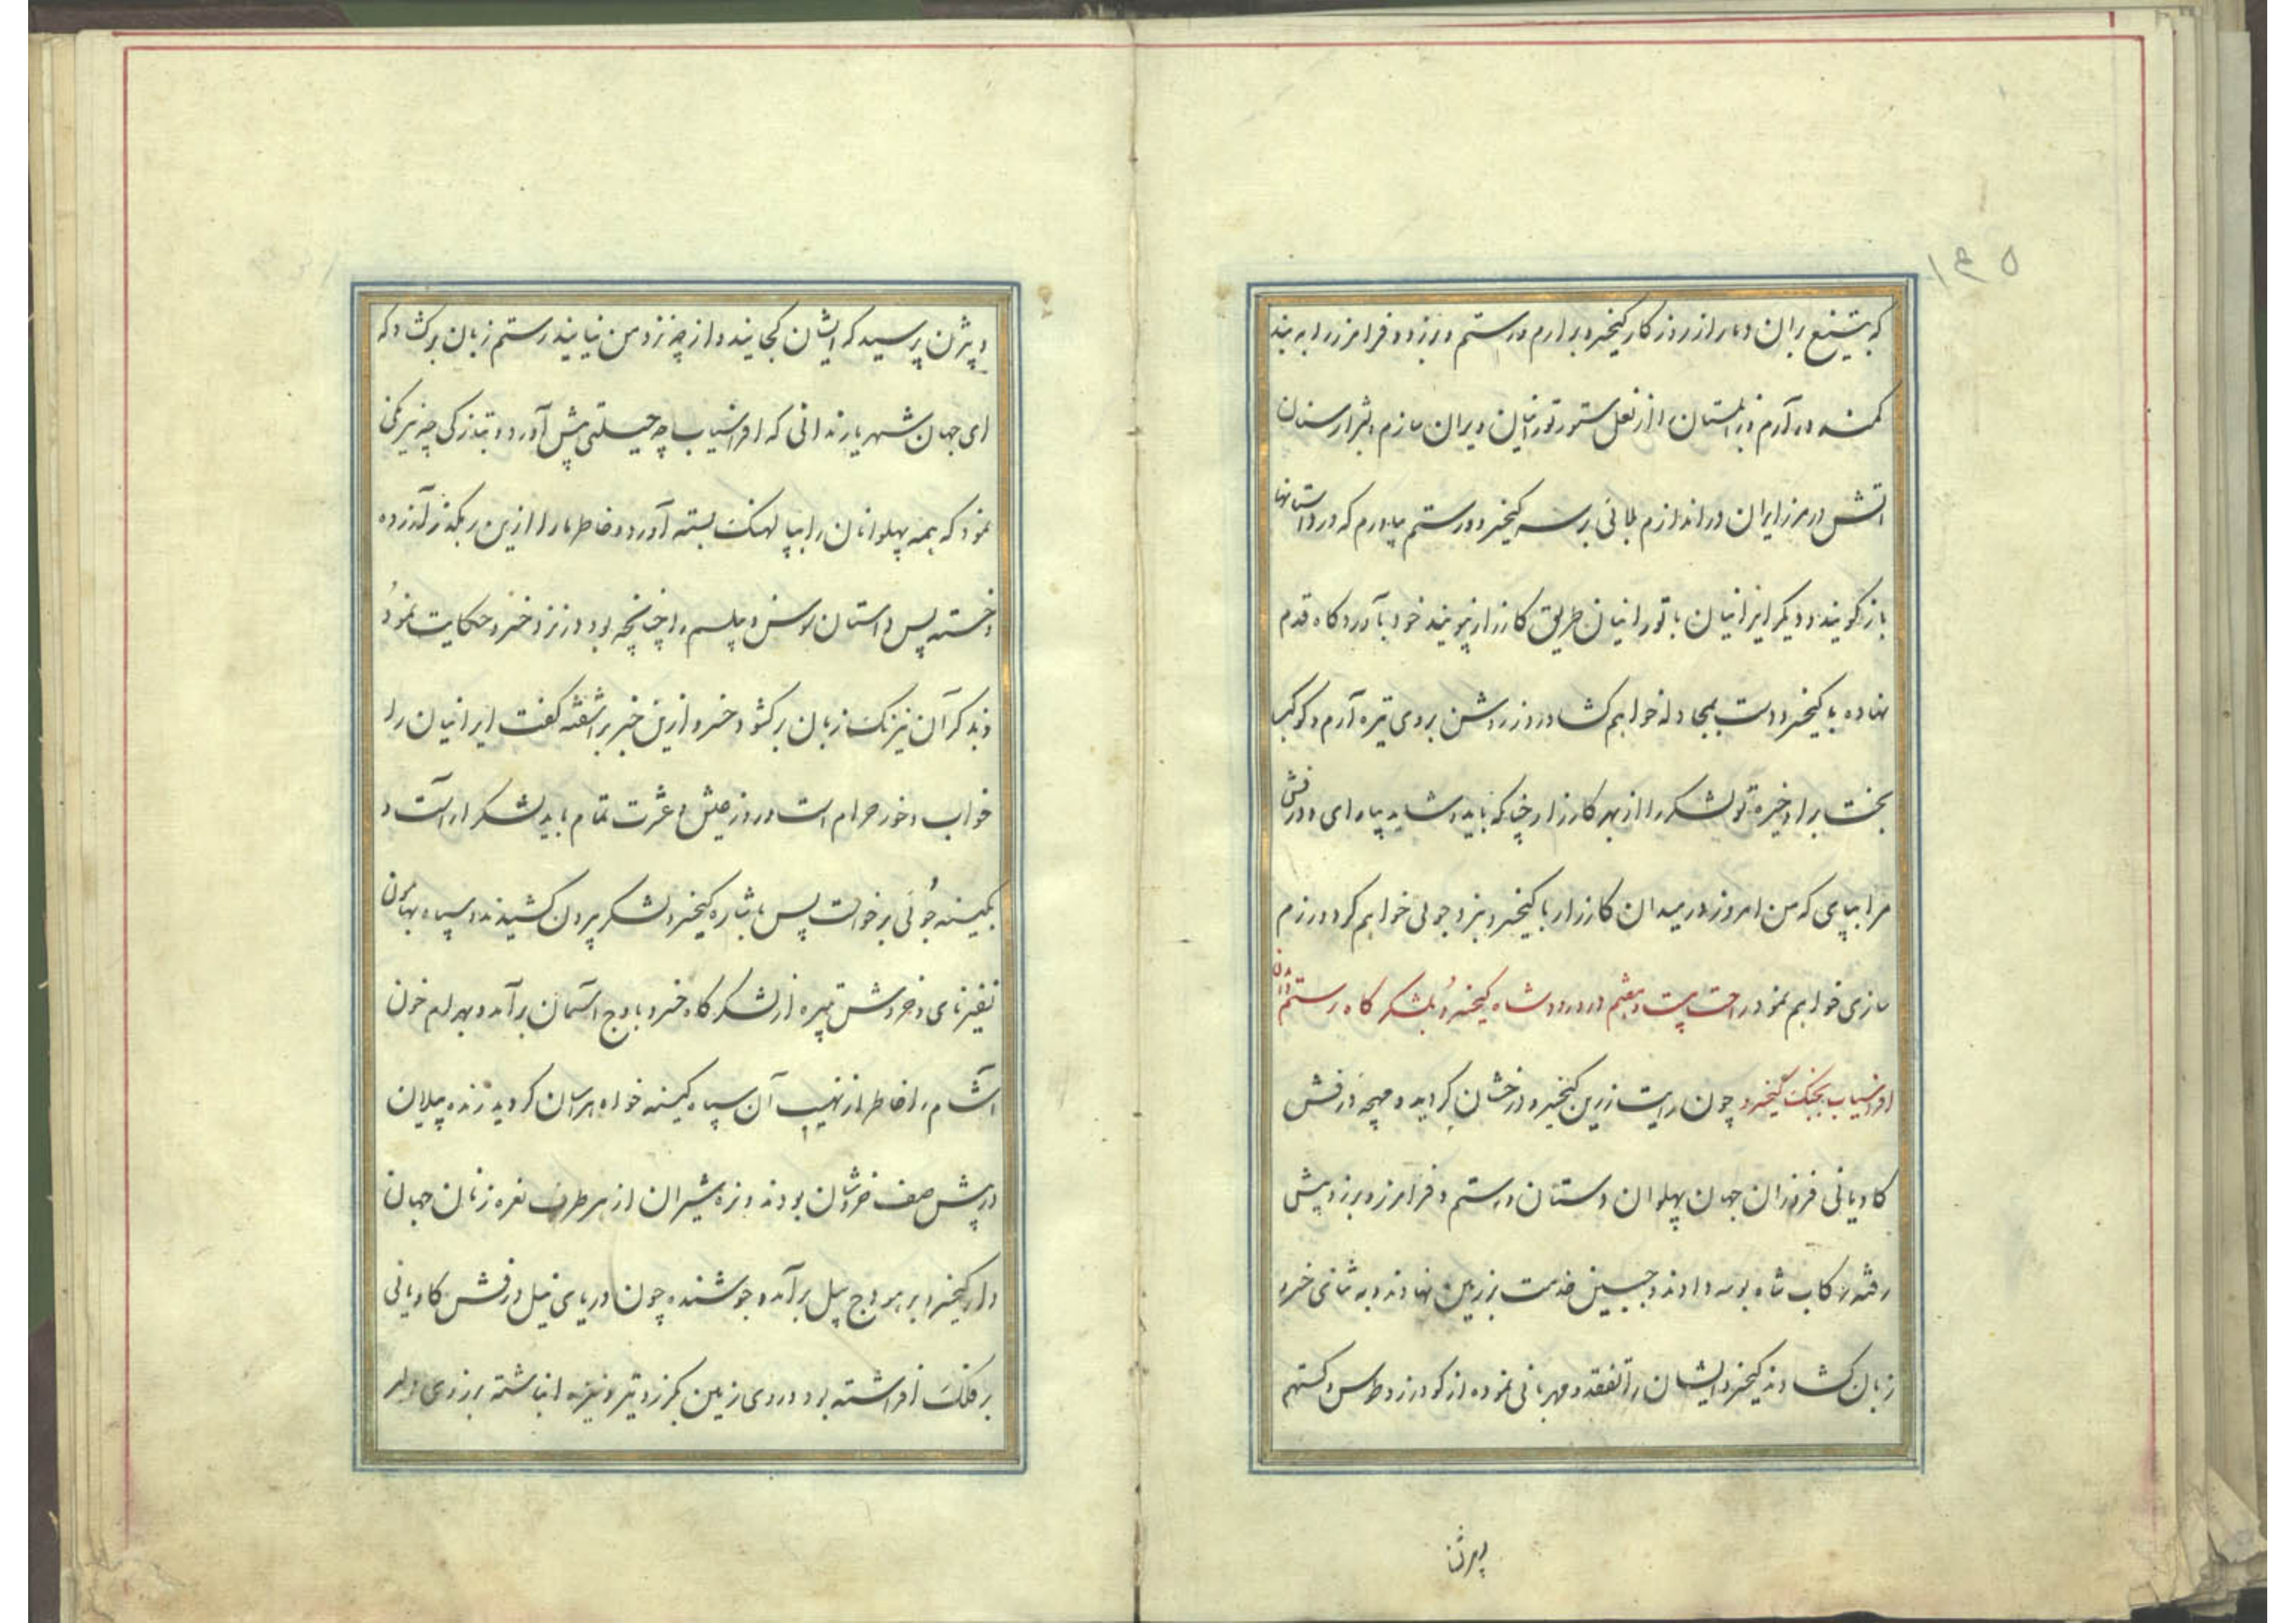 ۱۴۵
که بتیغ بران دمار از روزگار کیخسرو برارم و رستم و برزو و فرامرز را به بند
کمند در آرم زابلستان را از نعل ستور تورانیان ویران سازم شرارسان
آتش در مرز ایران در اندازم بلائی بر سر کیخسرو و رستم بیاورم که در داستانها
باز گویند و دیگر ایرانیان با تورانیان طریق کارزار نپویند خود بآوردگاه قدم
نهاده با کیخسرو دست بمجادله خواهم گشاد و روز روشن بروی تیره آرم و کوکب
بخت بر او خیره تو لشکر را از بهر کارزار چنانکه باید و شاید بیارای و درفش
مرا بپای که من امروز در میدان کارزار با کیخسرو نبرد جوئی خواهم کرد و رزم
سازی خواهم نمود راحت بیست و هفتم در ورود شاه کیخسرو بلشکرگاه رستم و آمدن
افراسیاب بجنگ کیخسرو چون رایت زرین کیخسرو درخشان گردید و مهچه درفش
کاویانی فروزان جهان پهلوان دستان و رستم و فرامرز و برزو پیش
رفته رکاب شاه بوسه دادند و جبین خدمت بر زمین نهادند و به ثنای خسرو
زبان گشادند کیخسرو ایشان را تفقد و مهربانی نموده از گودرز و طوس و گستهم
وبیژن
و بیژن پرسید که ایشان کجایند و از چه نزد من نیایند رستم زبان برگشاد که
ای جهان شهریار ندانی که افراسیاب چه حیلتی پیش آورد و بتازگی چه نیرنگی
نمود که همه پهلوانان را بپالهنگ بسته آورد و خاطر ما را ازین رهگذر آزرده
و خسته پس داستان سوسن و پیلسم را چنانچه بود در نزد خسرو حکایت نمود
و بذکر آن نیرنگ زبان برگشود خسرو ازین خبر براشفته گفت ایرانیان را
خواب و خور حرام است و روز عیش و عشرت تمام باید لشکر اراست و
بکینه جوئی برخواست پس باشاره کیخسرو لشکر بیرون کشیدند و سپاه بهامون
نفیر نای و خروش تبیره از لشکرگاه خسرو باوج آسمان برآمد و بهرام خون
آشام را خاطر از نهیب آن سپاه کینه خواه هراسان گردید ژنده پیلان
در پیش صف خروشان بودند و نره شیران از هر طرف نعره زنان جهان
دار کیخسرو بر هودج پیل برآمد و جوشنده چون دریای نیل درفش کاویانی
بر فلک افراشته بود و روی زمین بگرز و تیر و نیزه انباشته برزوی دلیر